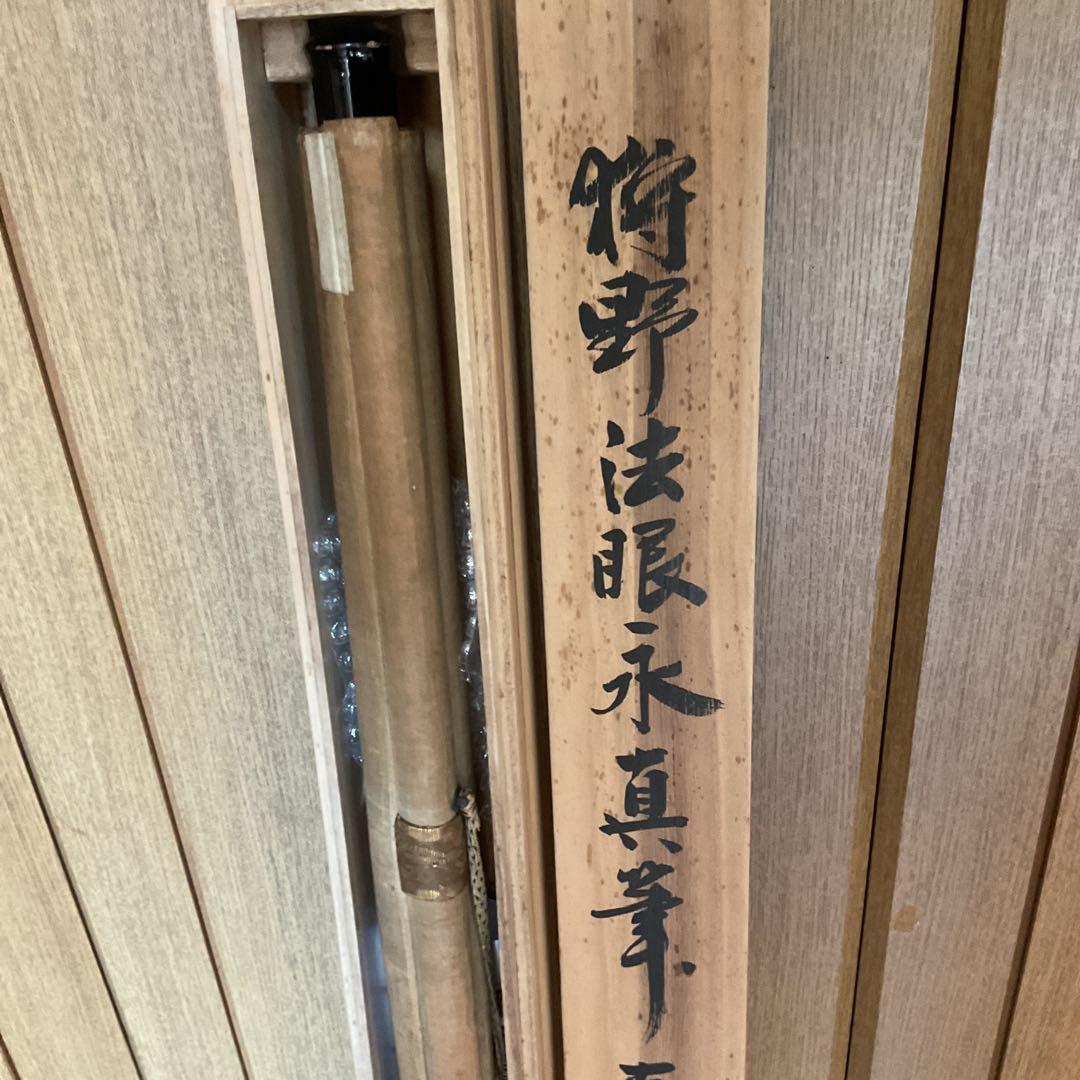 狩野法眼永真筆